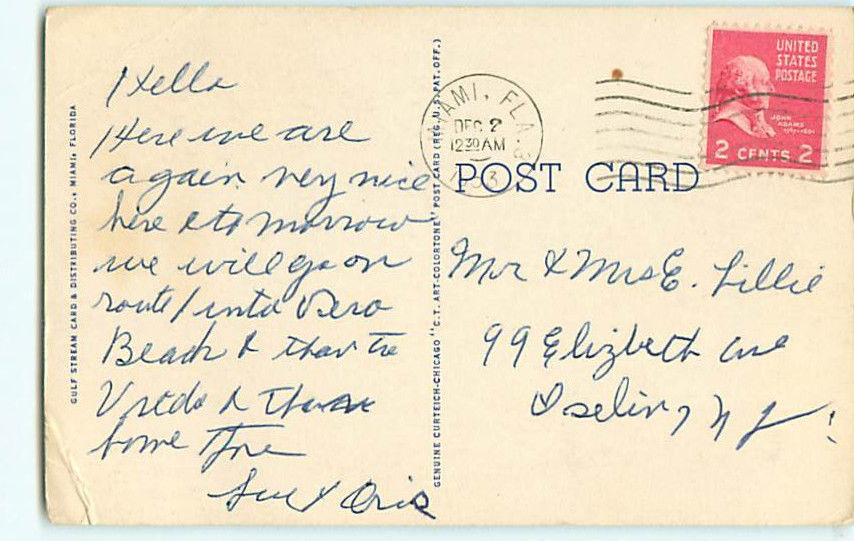 Hello
Here we are
again very nice
here & tomorrow
we will go on
route 1 into Vero
Beach & than to
& than
home
Sue &
GULF STREAM CARD & DISTRIBUTING CO., MIAMI, FLORIDA
GENUINE CURTEICH-CHICAGO "C.T. ART-COLORTONE" POST CARD (REG. U.S. PAT. OFF.)
MIAMI, FLA.
DEC 2
12 30 AM
UNITED
STATES
POSTAGE
JOHN
ADAMS
2 CENTS 2
POST CARD
Mr & Mrs E. Lillie
99 Elizbeth ave
Iselin, N J.